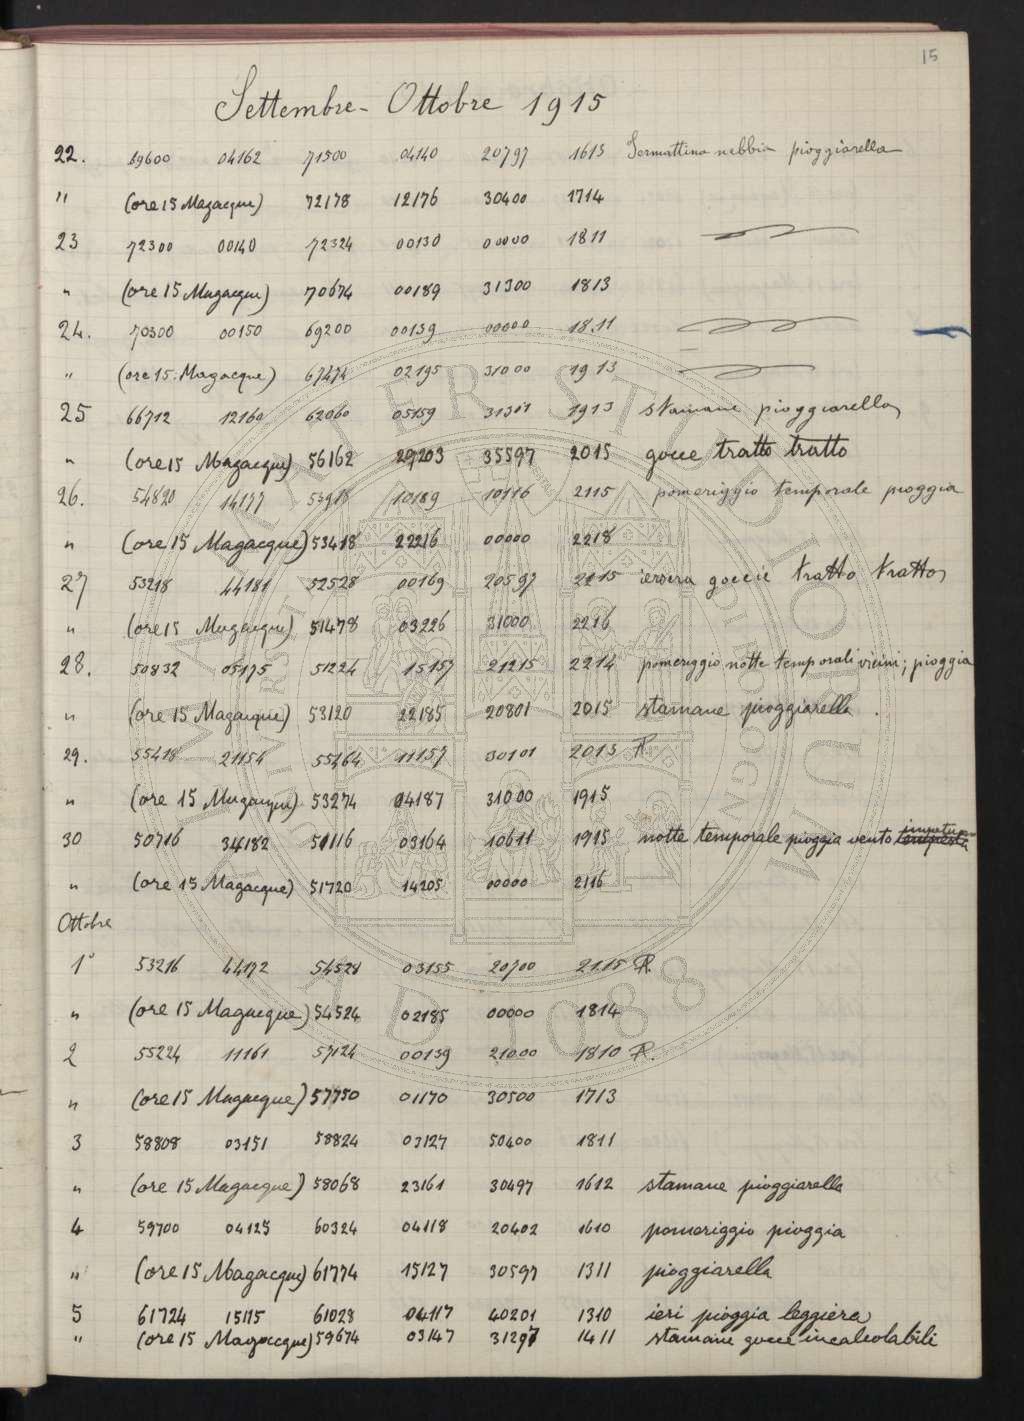 15
Settembre - Ottobre 1915
22. 69600 04162 71500 04140 20797 1615 Sermattina nebbia pioggiarella
" (ore 15 Magacque) 72178 12176 30400 1714
23 72300 00140 72324 00130 00000 1811
" (ore 15 Magacque) 70674 00189 31300 1813
24. 70300 00150 69200 00139 00000 18.11
" (ore 15. Magacque) 67474 02195 31000 1913
25 66712 12160 62060 05159 31301 1913 stamane pioggiarella
" (ore 15 Magacque) 56162 29203 35597 2015 gocce tratto tratto
26. 54820 14177 53918 10189 10116 2115 pomeriggio temporale pioggia
" (ore 15 Magacque) 53418 22216 00000 2218
27 53218 44181 52528 00169 20597 2115 iersera goccie tratto tratto
" (ore 15 Magacque) 51478 03226 31000 2216
28. 50832 05175 51224 15157 21215 2214 pomeriggio notte temporali vicini; pioggia
" (ore 15 Magacque) 53120 22185 20801 2015 stamane pioggiarella.
29. 55418 21154 55464 11157 30101 2013 R.
" (ore 15 Magacque) 53274 04187 31000 1915
30 50716 34182 51116 03164 10611 1915 notte temporale pioggia vento tempesta
" (ore 15 Magacque) 51720 14205 00000 2116
Ottobre
1° 53216 44172 54528 03155 20700 2115 R.
" (ore 15 Magacque) 54524 02185 00000 1814
2 55224 11161 57124 00139 21000 1810 R.
" (ore 15 Magacque) 57750 01170 30500 1713
3 58808 03151 58824 03127 50400 1811
" (ore 15 Magacque) 58068 23161 30497 1612 stamane pioggiarella
4 59700 04125 60324 04118 20402 1610 pomeriggio pioggia
" (ore 15 Magacque) 61774 15127 30597 1311 pioggiarella
5 61724 15115 61028 04117 40201 1310 ieri pioggia leggiera
" (ore 15 Magacque) 59674 03147 31297 1411 stamane gocce incalcolabili
ALMA MATER STUDIORUM
A.D. 1088